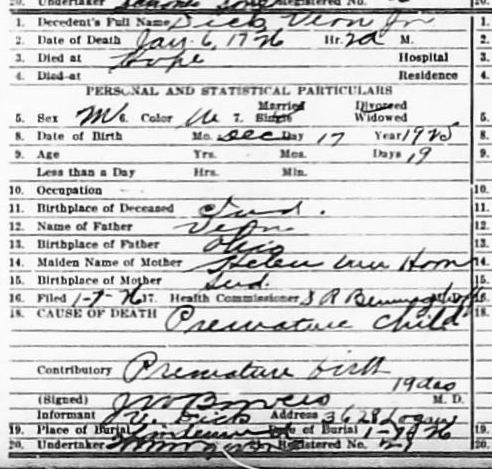 20. Undertaker Registered No.
1. Decedent's Full Name Dick Vern Jr 1.
2. Date of Death Jan. 6, 1926 Hr. 2a M. 2.
3. Died at Hope Hospital 3.
4. Died at Residence 4.
PERSONAL AND STATISTICAL PARTICULARS
5. Sex M 6. Color W 7. Married Single Divorced Widowed 5.
8. Date of Birth Mo. Dec Day 17 Year 1925 8.
9. Age Yrs. Mos. Days 19 9.
Less than a Day Hrs. Min.
10. Occupation 10.
11. Birthplace of Deceased Ind. 11.
12. Name of Father Vern 12.
13. Birthplace of Father Ohio 13.
14. Maiden Name of Mother Helen Van Horn 14.
15. Birthplace of Mother Ind. 15.
16. Filed 1-7-26 17. Health Commissioner S R M.D. 16.
18. CAUSE OF DEATH Premature child 18.
Contributory Premature birth
19 das
(Signed) J W Bowers M. D.
Informant J V. Dick Address 3628 Logan
19. Place of Burial Date of Burial 1-7-26 19.
20. Undertaker Registered No. 20.